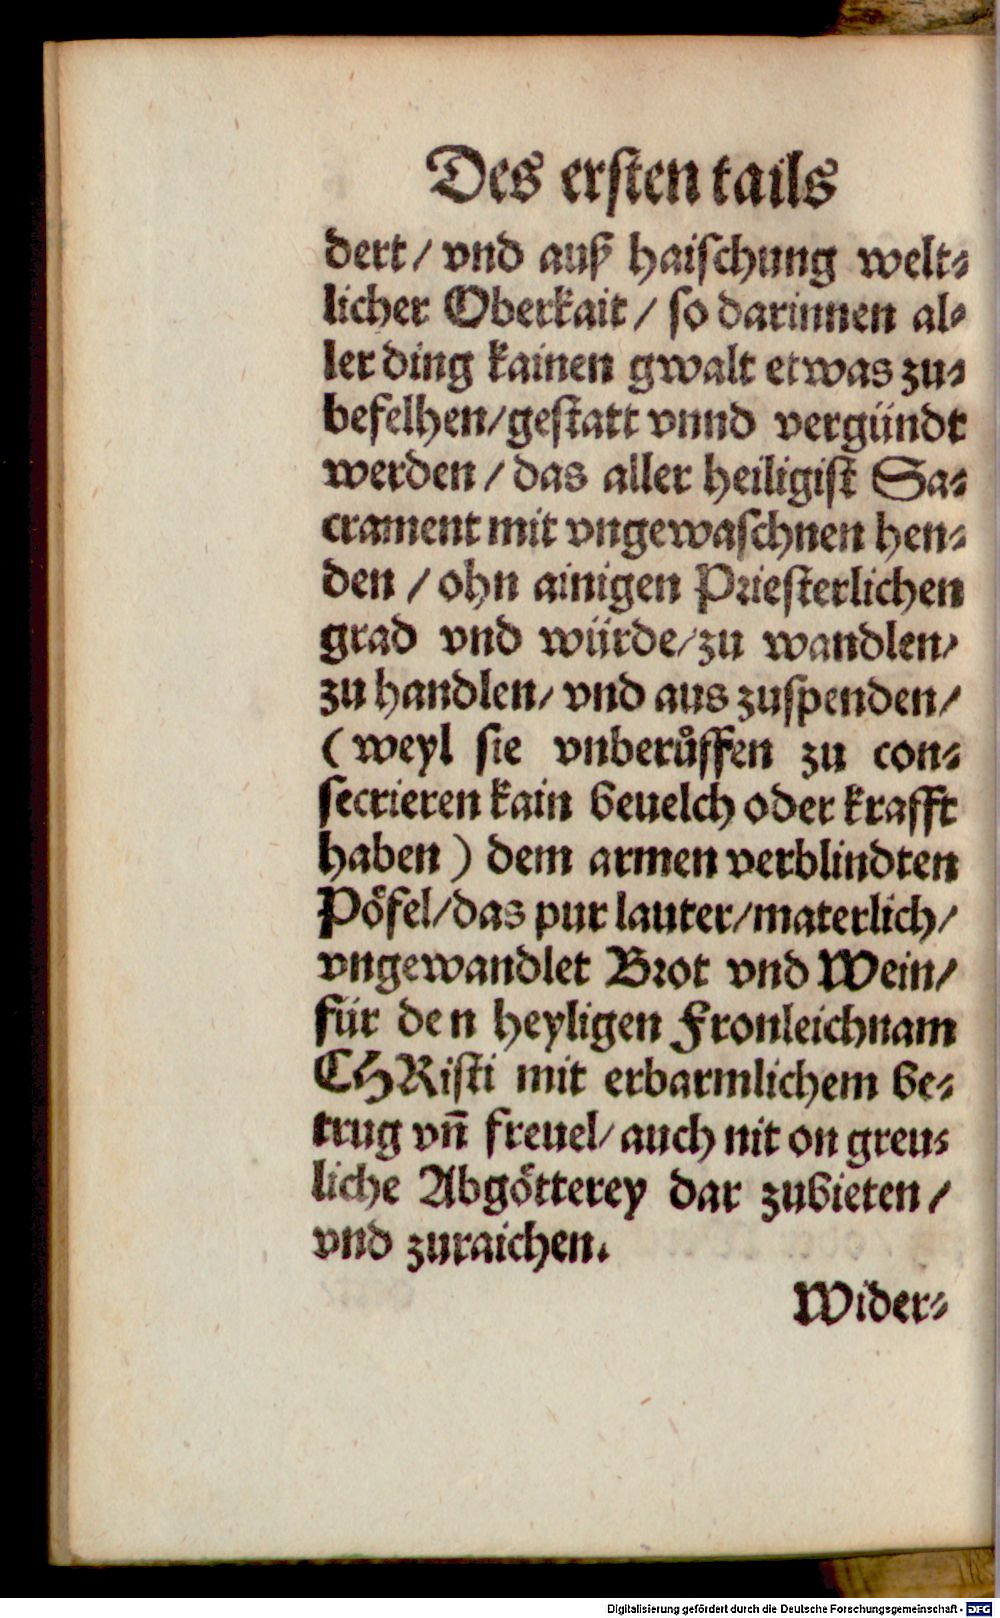 Des ersten tails
dert / vnd auß haischung welt⸗
licher Oberkait / so darinnen al⸗
ler ding kainen gwalt etwas zu⸗
befelhen / gestatt vnnd vergündt
werden / das aller heiligist Sa⸗
crament mit vngewaschnen hen⸗
den / ohn ainigen Priesterlichen
grad vnd würde / zu wandlen /
zu handlen / vnd aus zuspenden /
( weyl sie vnberůffen zu con⸗
secrieren kain beuelch oder krafft
haben ) dem armen verblindten
Pöfel / das pur lauter / materlich /
vngewandlet Brot vnd Wein /
für den heyligen Fronleichnam
CHRisti mit erbarmlichem be⸗
trug vn̄ freuel / auch nit on greu⸗
liche Abgötterey dar zubieten /
vnd zuraichen.
Wider⸗
Digitalisierung gefördert durch die Deutsche Forschungsgemeinschaft - DFG